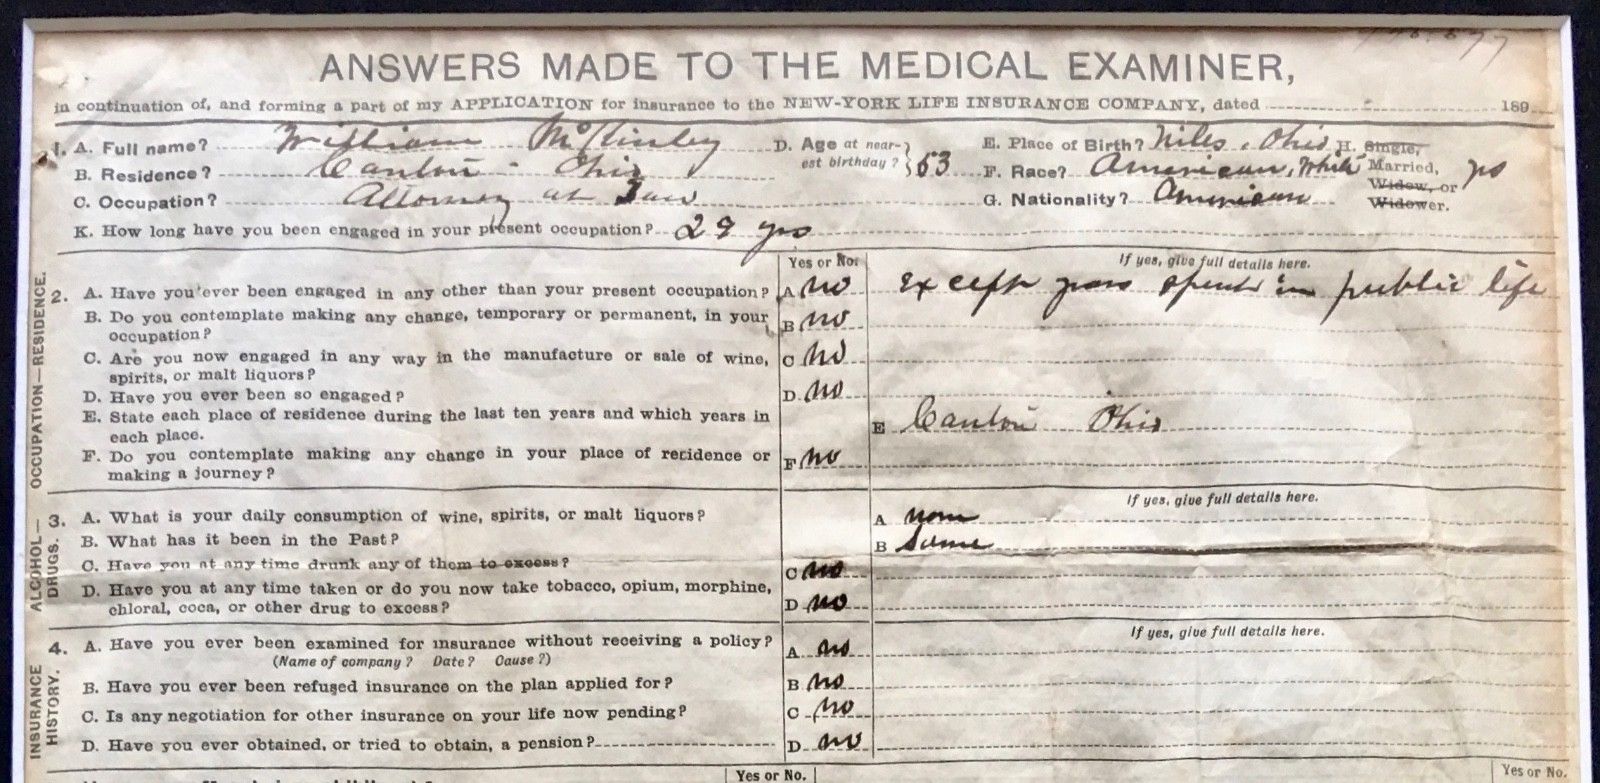 ANSWERS MADE TO THE MEDICAL EXAMINER,
in continuation of, and forming a part of my APPLICATION for insurance to the NEW-YORK LIFE INSURANCE COMPANY, dated 189
1. A. Full name? William McKinley D. Age at near-est birthday? 53 E. Place of Birth? Niles, Ohio H. Single,
B. Residence? Canton Ohio F. Race? American, White Married, yes
C. Occupation? Attorney at Law G. Nationality? American Widow, or Widower.
K. How long have you been engaged in your present occupation? 29 yrs
OCCUPATION—RESIDENCE.
Yes or No. If yes, give full details here.
2. A. Have you ever been engaged in any other than your present occupation? A no Except years spent in public life
B. Do you contemplate making any change, temporary or permanent, in your B no
occupation?
C. Are you now engaged in any way in the manufacture or sale of wine, C no
spirits, or malt liquors?
D. Have you ever been so engaged? D no
E. State each place of residence during the last ten years and which years in
each place. E Canton Ohio
F. Do you contemplate making any change in your place of recidence or F no
making a journey?
ALCOHOL—DRUGS.
If yes, give full details here.
3. A. What is your daily consumption of wine, spirits, or malt liquors? A none
B. What has it been in the Past? B Same
C. Have you at any time drunk any of them to excess? C no
D. Have you at any time taken or do you now take tobacco, opium, morphine, D no
chloral, coca, or other drug to excess?
INSURANCE HISTORY.
If yes, give full details here.
4. A. Have you ever been examined for insurance without receiving a policy? A no
(Name of company? Date? Cause?)
B. Have you ever been refused insurance on the plan applied for? B no
C. Is any negotiation for other insurance on your life now pending? C no
D. Have you ever obtained, or tried to obtain, a pension? D no
Yes or No. Yes or No.